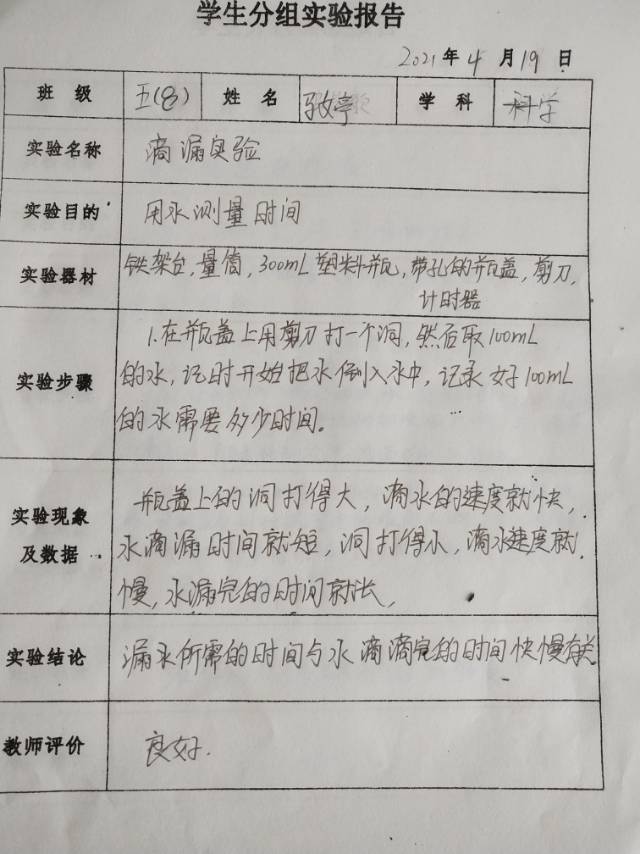 学生分组实验报告
2021年4月19日
班级 五(8) 姓名 学科 科学
实验名称 滴漏实验
实验目的 用水测量时间
实验器材 铁架台,量筒,300mL塑料瓶,带孔的瓶盖,剪刀,
计时器
实验步骤 1.在瓶盖上用剪刀打一个洞,然后取100mL
的水,记时开始把水倒入水中,记录好100mL
的水需要多少时间。
实验现象及数据 瓶盖上的洞打得大,滴水的速度就快,
水滴漏时间就短,洞打得小,滴水速度就
慢,水漏完的时间就长,
实验结论 漏水所需的时间与水滴滴完的时间快慢有关
教师评价 良好.